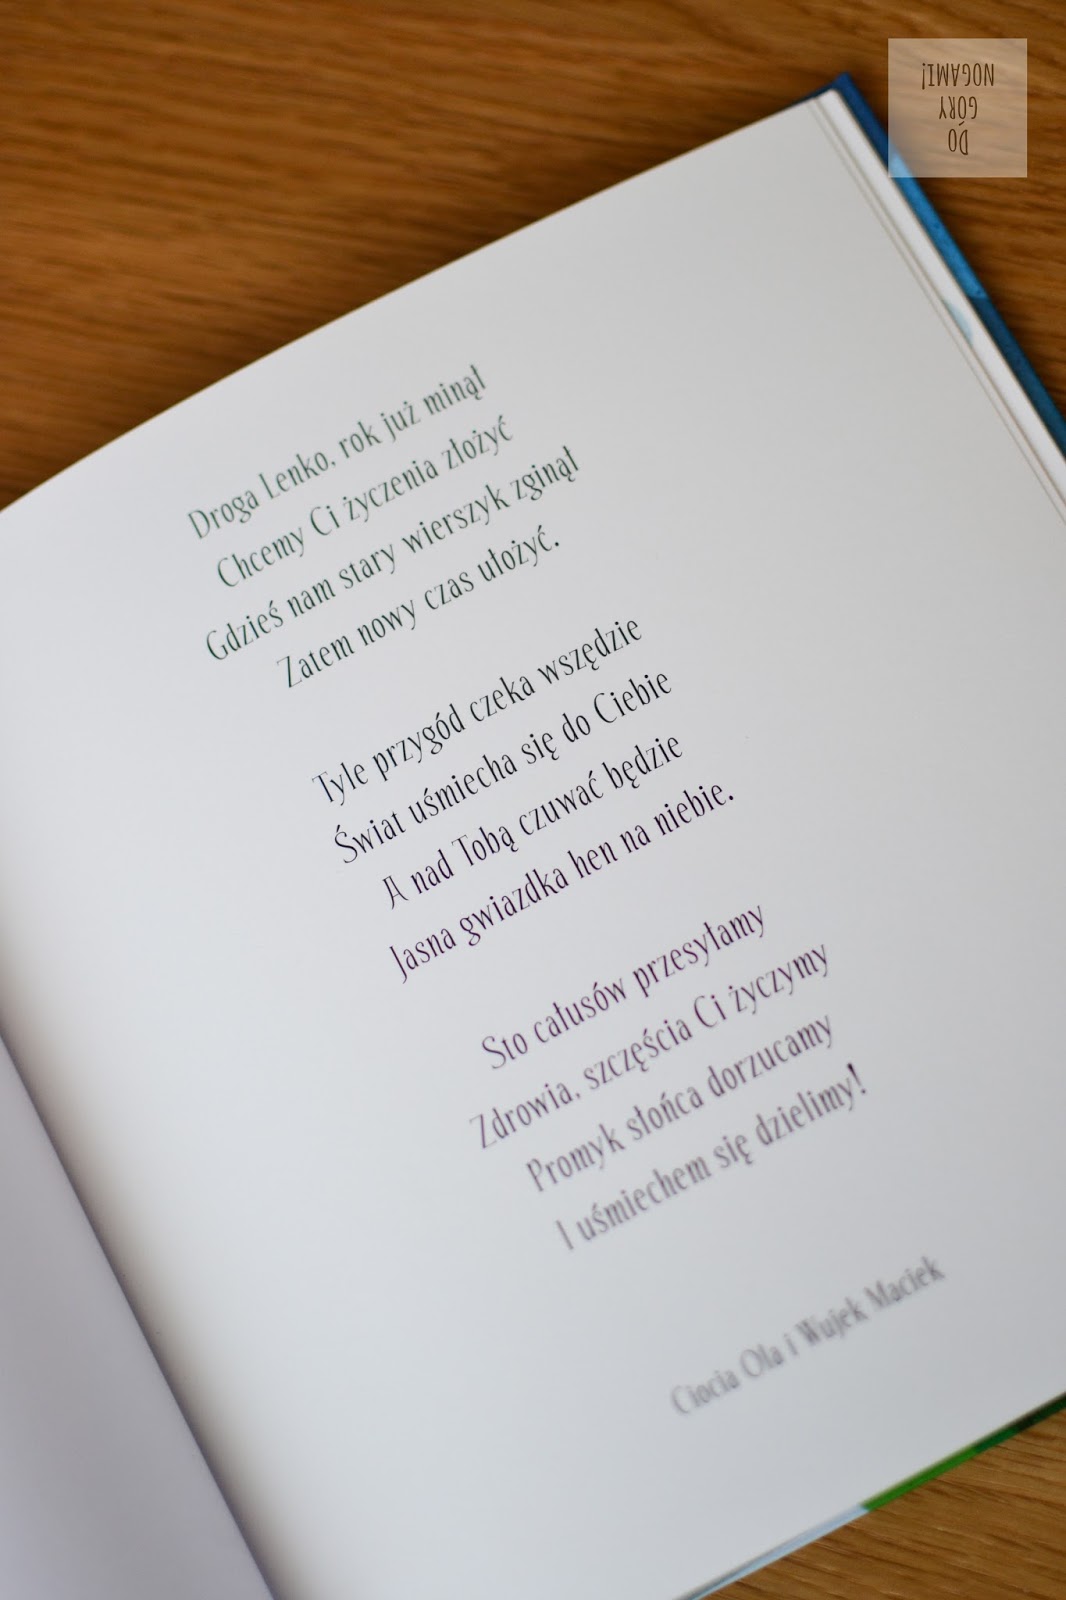 DO
GÓRY
NOGAMI!
Droga Lenko, rok już minął
Chcemy Ci życzenia złożyć
Gdzieś nam stary wierszyk zginął
Zatem nowy czas ułożyć.
Tyle przygód czeka wszędzie
Świat uśmiecha się do Ciebie
A nad Tobą czuwać będzie
Jasna gwiazdka hen na niebie.
Sto całusów przesyłamy
Zdrowia, szczęścia Ci życzymy
Promyk słońca dorzucamy
I uśmiechem się dzielimy!
Ciocia Ola i Wujek Maciek